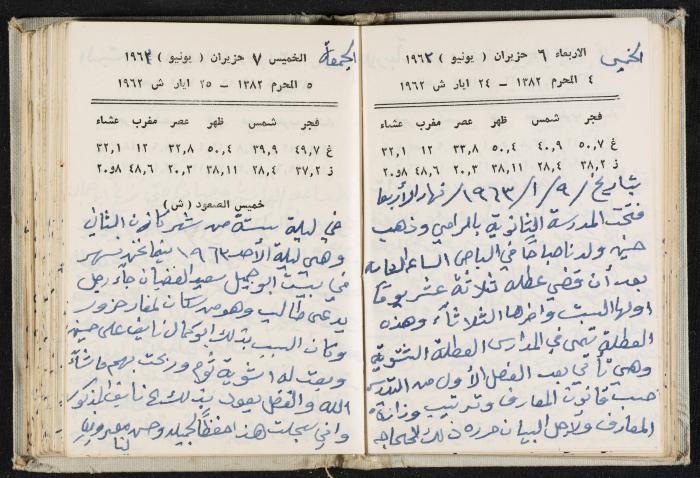 الخميس
الاربعاء ٦ حزيران ( يونيو ) ١٩٦٣
٤ المحرم ١٣٨٢ - ٢٤ ايار ش ١٩٦٢
فجر شمس ظهر عصر مغرب عشاء
غ ٥٠,٧ ٤٠,٩ ٥٠,٤ ٣٣,٨ ١٢ ٣٢,١
ز ٣٨,٢ ٢٨,٤ ٣٨,١١ ٢٠,٣ ٤٨,٦ ٢٠و٨
بتاريخ /٩/١/١٩٦٣/ نهار الأربعا
فتحت المدرسة الثانوية بالرامي وذهب
حنين ولدنا صباحًا في الباص الساعه
بعد أن قضي عطله ثلاثة عشر يومًا
اولها السبت واخرها الثلاثاء وهذه
العطلة تسمى في المدارس العطلة الشتوية
وهي تأتي بعد الفصل الأول من
حسب قانون المعارف وترتيب وزارة
المعارف ولاجل البيان حرره ذلك
الجمعة
الخميس ٧ حزيران ( يونيو ) ١٩٦٣
٥ المحرم ١٣٨٢ - ٢٥ ايار ش ١٩٦٢
فجر شمس ظهر عصر مغرب عشاء
غ ٤٩,٧ ٣٩,٩ ٥٠,٤ ٣٢,٨ ١٢ ٣٢,١
ز ٣٧,٢ ٢٨,٤ ٣٨,١١ ٢٠,٣ ٤٨,٦ ٢٠و٨
خميس الصعود (ش)
في ليلة ستة من شهر كانون الثاني
وهي ليلة الأحد ١٩٦٣ بينما نحن نسهر
في بيت ابو جميل سعيد الغضبان جاء رجل
يدعى طالب وهو من سكان لمغار حزور
وكان السبب بذلك ابو كمال نايف علي حسين
وبعت له اشوية ثوم وربحت بهم ما شاء
الله والفضل يعود بذلك نايف المذكور
واني سجلت هذا حفظًا لجميله وحسن معروفه
لنا